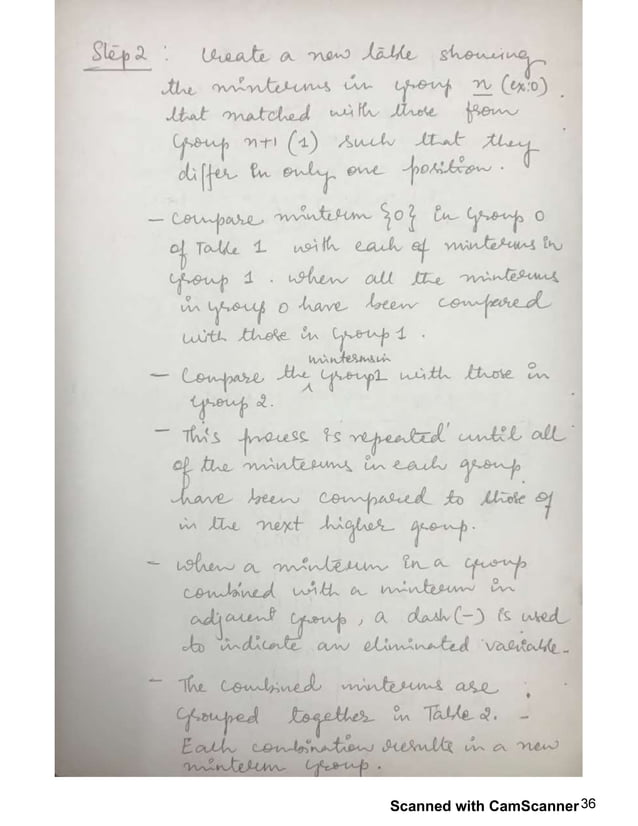 Step 2 : Create a new table showing
the minterms in group n (ex:0)
that matched with those from
Group n+1 (1) such that they
differ in only one position.
- Compare minterm {0} in Group 0
of Table 1 with each of minterms in
Group 1. when all the minterms
in group 0 have been compared
with those in Group 1.
minterms in
- Compare the ^ Group1 with those in
Group 2.
- This process is repeated until all
of the minterms in each group
have been compared to those of
in the next higher group.
- when a minterm in a group
combined with a minterm in
adjacent group, a dash (-) is used
to indicate an eliminated variable.
- The combined minterms are
Grouped together in Table 2. -
Each combination results in a new
minterm group.
Scanned with CamScanner36